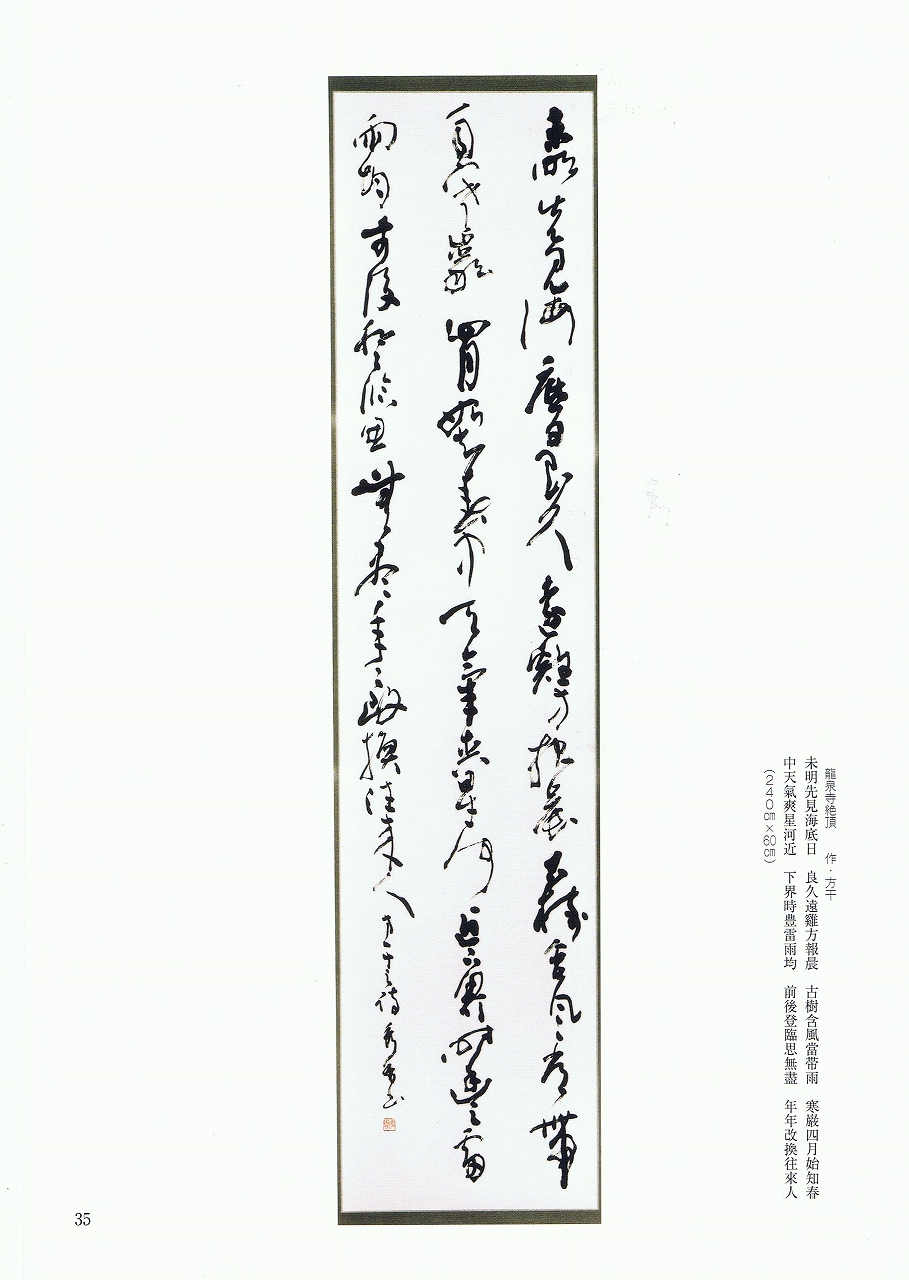 未明先見海底日良久遠雞方報晨古樹含風常帯
雨寒巖四月始知春中天氣爽星河近下界時豊雷
雨均前後登臨思無盡年々改換往来人 方干之詩
龍泉寺絶頂 作・方干
未明先見海底日 良久遠雞方報晨 古樹含風當帯雨 寒巌四月始知春
中天氣爽星河近 下界時豊雷雨均 前後登臨思無盡 年年改換往來人
(240㎝×60㎝)
35